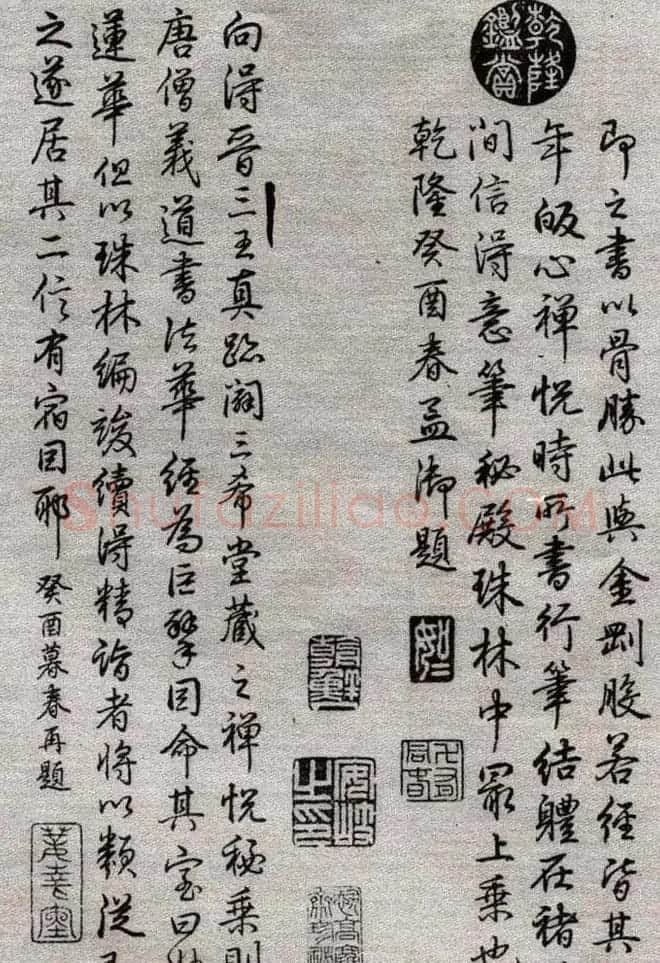 乾隆鑑賞
即之書以骨勝此與金剛般若經皆其
年皈心禪悅時所書行筆結體在褚
間信得意筆秘殿珠林中最上乘也
乾隆癸酉春孟御題
安岐之印
向得晉三王真跡闢三希堂藏之禪悅秘乘則
唐僧義道書法華經為巨擘因命其室曰
蓮華但以珠林編竣續得精詣者將以類從
之遂居其二信有宿因耶癸酉暮春再題
Shufaziliao.COM